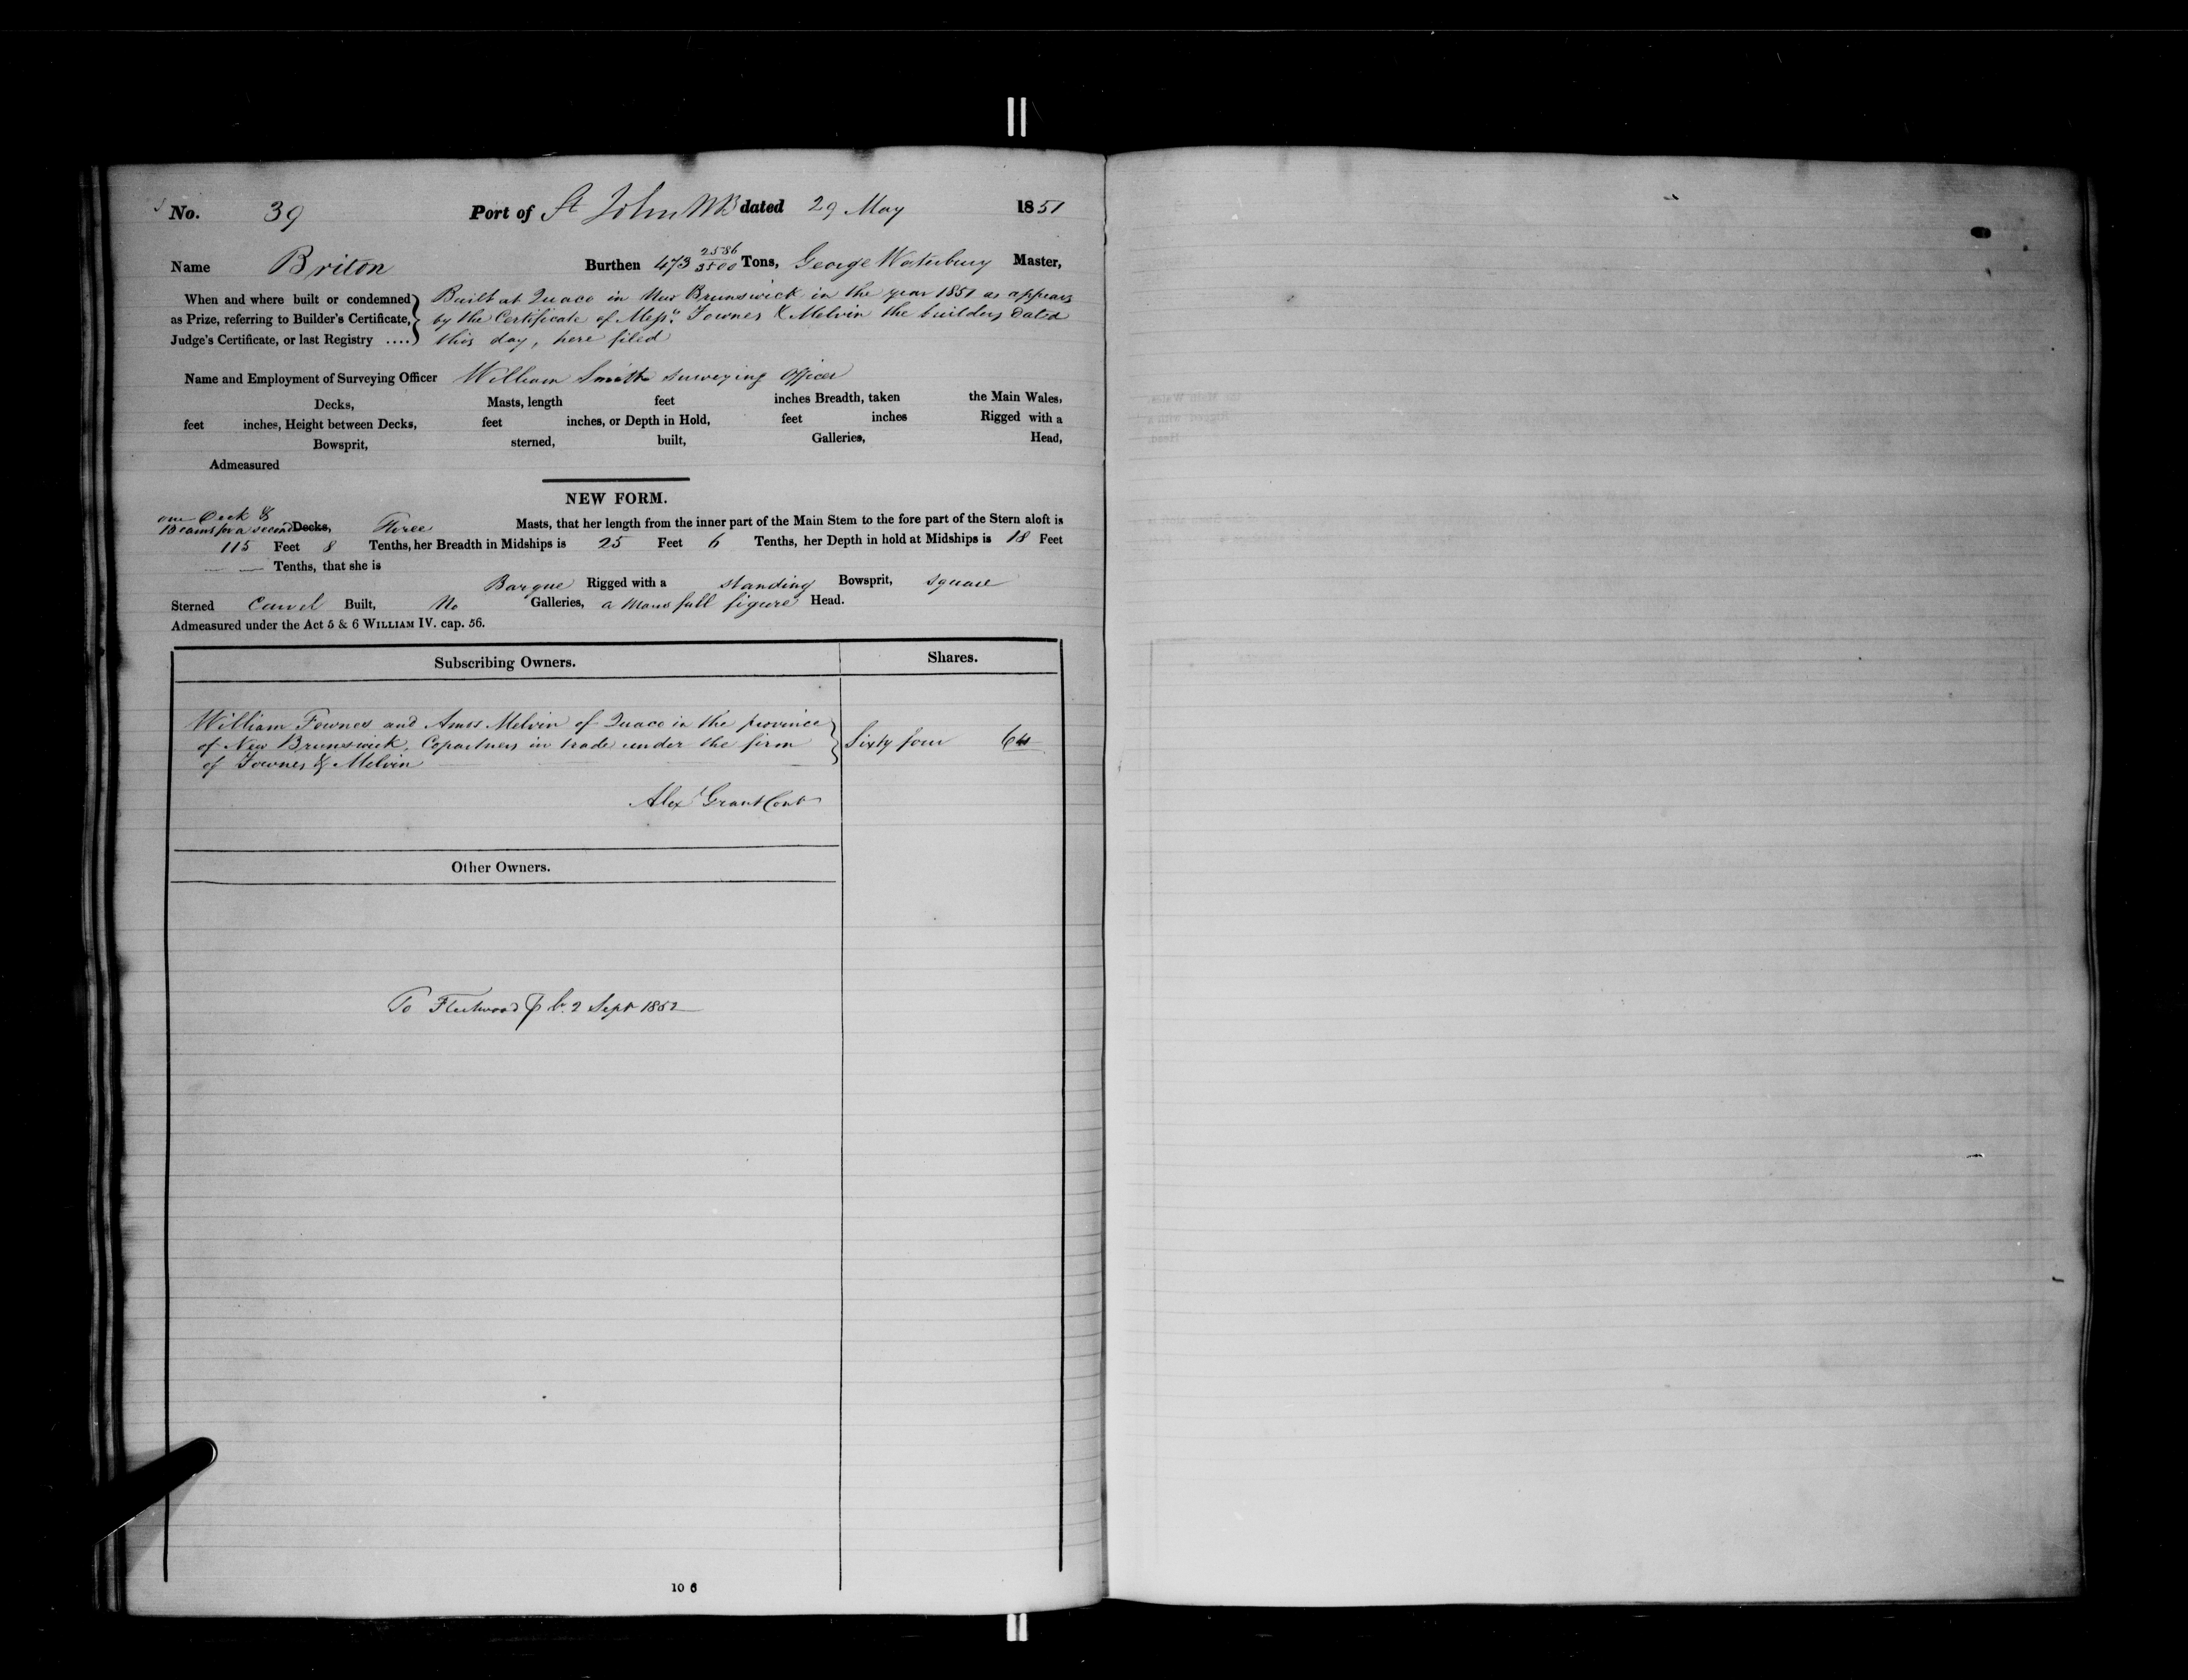 No. 39 Port of St John NB dated 29 May 1851
Name Briton Burthen 473 2586/3500 Tons, George Waterbury Master,
When and where built or condemned Built at Quaco in New Brunswick in the year 1851 as appears
as Prize, referring to Builder's Certificate, by the Certificate of Messrs. Fownes & Melvin the builders dated
Judge's Certificate, or last Registry .... this day, here filed
Name and Employment of Surveying Officer William Smith surveying officer
Decks, Masts, length feet inches Breadth, taken the Main Wales,
feet inches, Height between Decks, feet inches, or Depth in Hold, feet inches Rigged with a
Bowsprit, sterned, built, Galleries, Head,
Admeasured
NEW FORM.
one Deck &
Beams for a second Decks, Three Masts, that her length from the inner part of the Main Stem to the fore part of the Stern aloft is
115 Feet 8 Tenths, her Breadth in Midships is 25 Feet 6 Tenths, her Depth in hold at Midships is 18 Feet
— — Tenths, that she is
Barque Rigged with a standing Bowsprit, square
Sterned Carvel Built, No Galleries, a Mans full figure Head.
Admeasured under the Act 5 & 6 WILLIAM IV. cap. 56.
Subscribing Owners. Shares.
William Fownes and Amos Melvin of Quaco in the province
of New Brunswick, Copartners in trade under the firm Sixty four 64
of Fownes & Melvin
Alexr Grant Cont
Other Owners.
To Fleetwood 2 Sept 1852
10 6